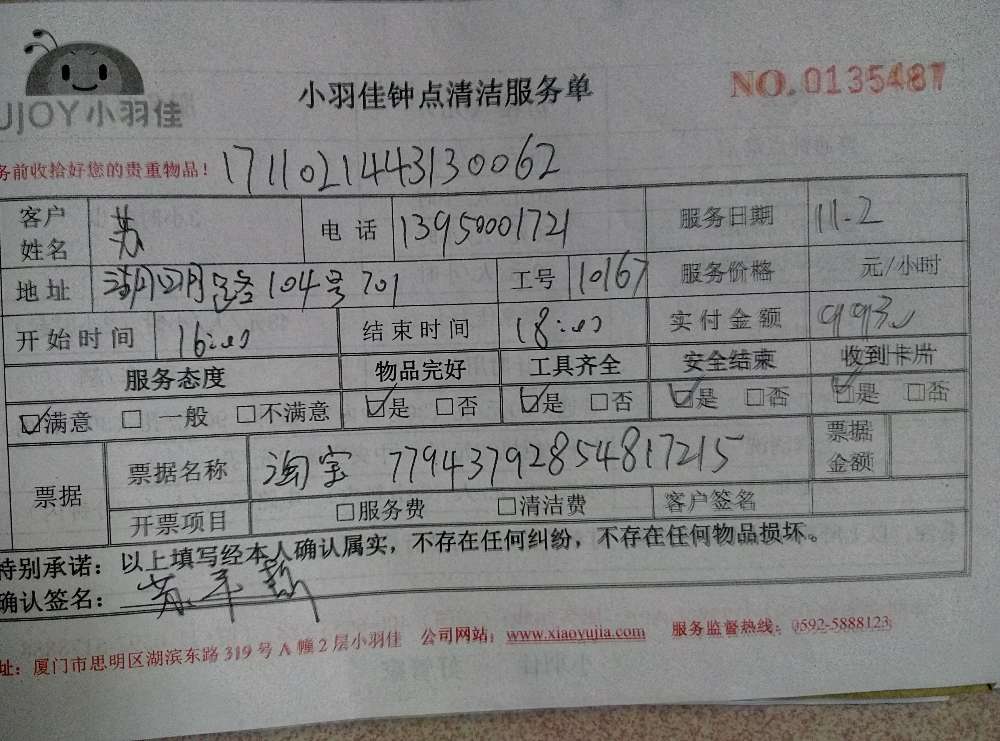 UJOY小羽佳
小羽佳钟点清洁服务单
NO.0135487
务前收拾好您的贵重物品！ 1711021443130062
客户姓名 苏 电话 13950001721 服务日期 11-2
地址 湖明路104号701 工号 10167 服务价格 元/小时
开始时间 16:00 结束时间 18:00 实付金额
服务态度 物品完好 工具齐全 安全结束 收到卡片
☑满意 □一般 □不满意 ☑是 □否 ☑是 □否 ☑是 □否 ☑是 □否
票据 票据名称 淘宝 77943792854817215 票据金额
开票项目 □服务费 □清洁费 客户签名
特别承诺：以上填写经本人确认属实，不存在任何纠纷，不存在任何物品损坏。
确认签名：
址：厦门市思明区湖滨东路319号A幢2层小羽佳 公司网站：www.xiaoyujia.com 服务监督热线：0592-5888123